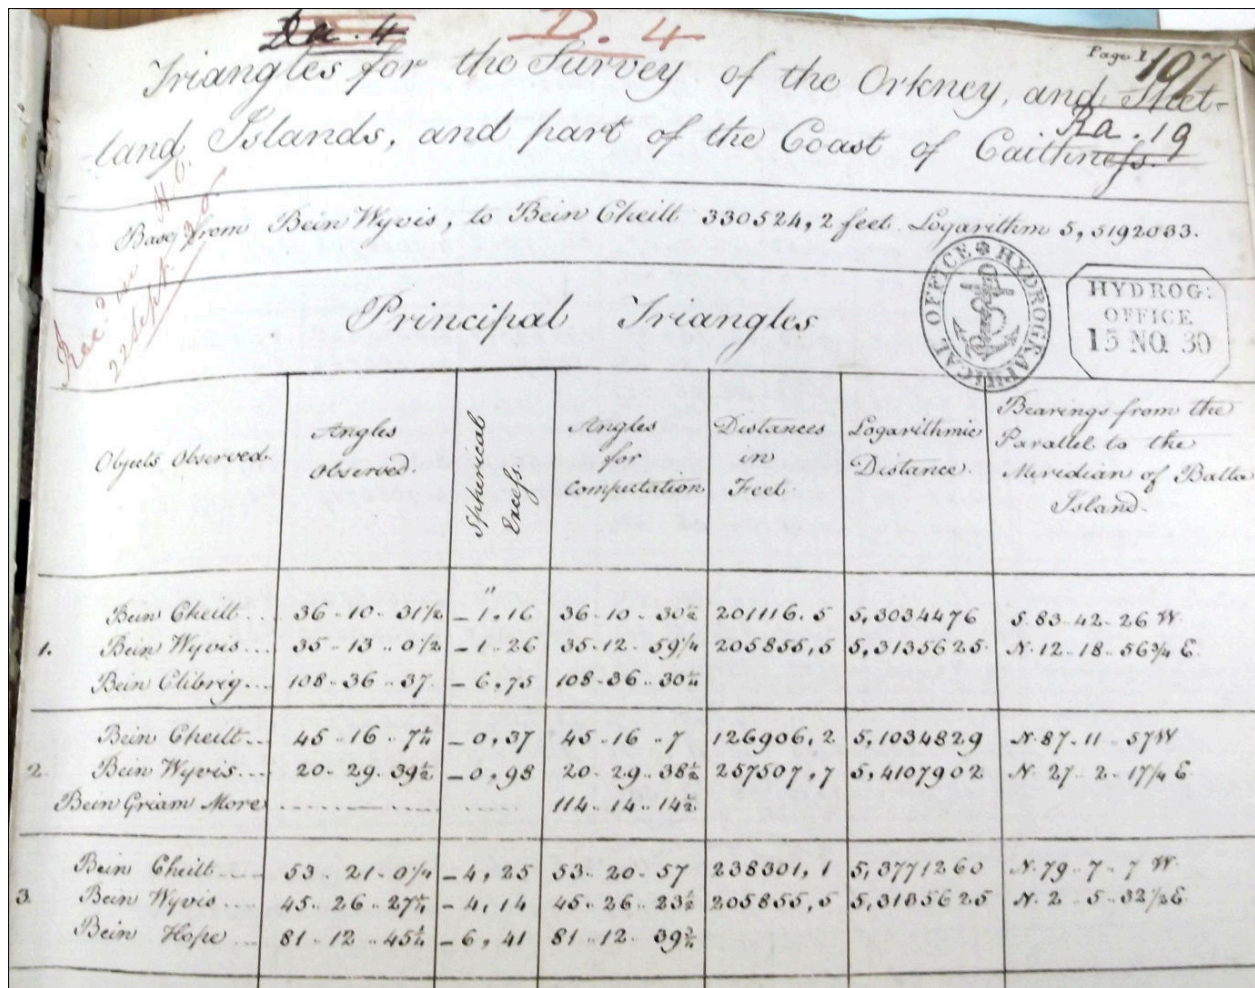 Da. 4 D. 4
Page 1 107
Triangles for the Survey of the Orkney, and Shet-
land Islands, and part of the Coast of Caithness.
Ra. 19
Base from Bein Wyvis, to Bein Cheilt 330524,2 feet. Logarithm 5,5192033.
Rec.d in H.O.
22 Sept.
HYDROGRAPHICAL OFFICE
HYDROG:
OFFICE
15 NO. 30
Principal Triangles
Objects Observed. Angles Observed. Spherical Excess. Angles for Computation Distances in Feet. Logarithmic Distance. Bearings from the Parallel to the Meridian of Balta Island.
1. Bein Cheilt... 36-10-31½ -1,16 36-10-30½ 201116.5 5,3034476 S.83-42-26 W.
Bein Wyvis... 35-13-0½ -1-26 35-12-59¼ 205855,5 5,3135625. N.12-18-56¾ E.
Bein Clibrig... 108-36-37. -6,75 108-36-30¼
2. Bein Cheilt... 45-16-7¼ -0,37 45-16-7 126906,2 5,1034829 N.87-11-57 W
Bein Wyvis... 20-29-39½ -0,98 20-29-38½ 257507,7 5,4107902 N. 27-2-17¼ E
Bein Griam More 114-14-14½
3. Bein Cheilt... 53-21-0¼ -4,25 53-20-57 238301,1 5,3771260 N.79-7-7 W.
Bein Wyvis... 45-26-27¼ -4,14 45-26-23½ 205855,5 5,3135625 N. 2-5-32½ E.
Bein Hope... 81-12-45¼ -6,41 81-12-39¾